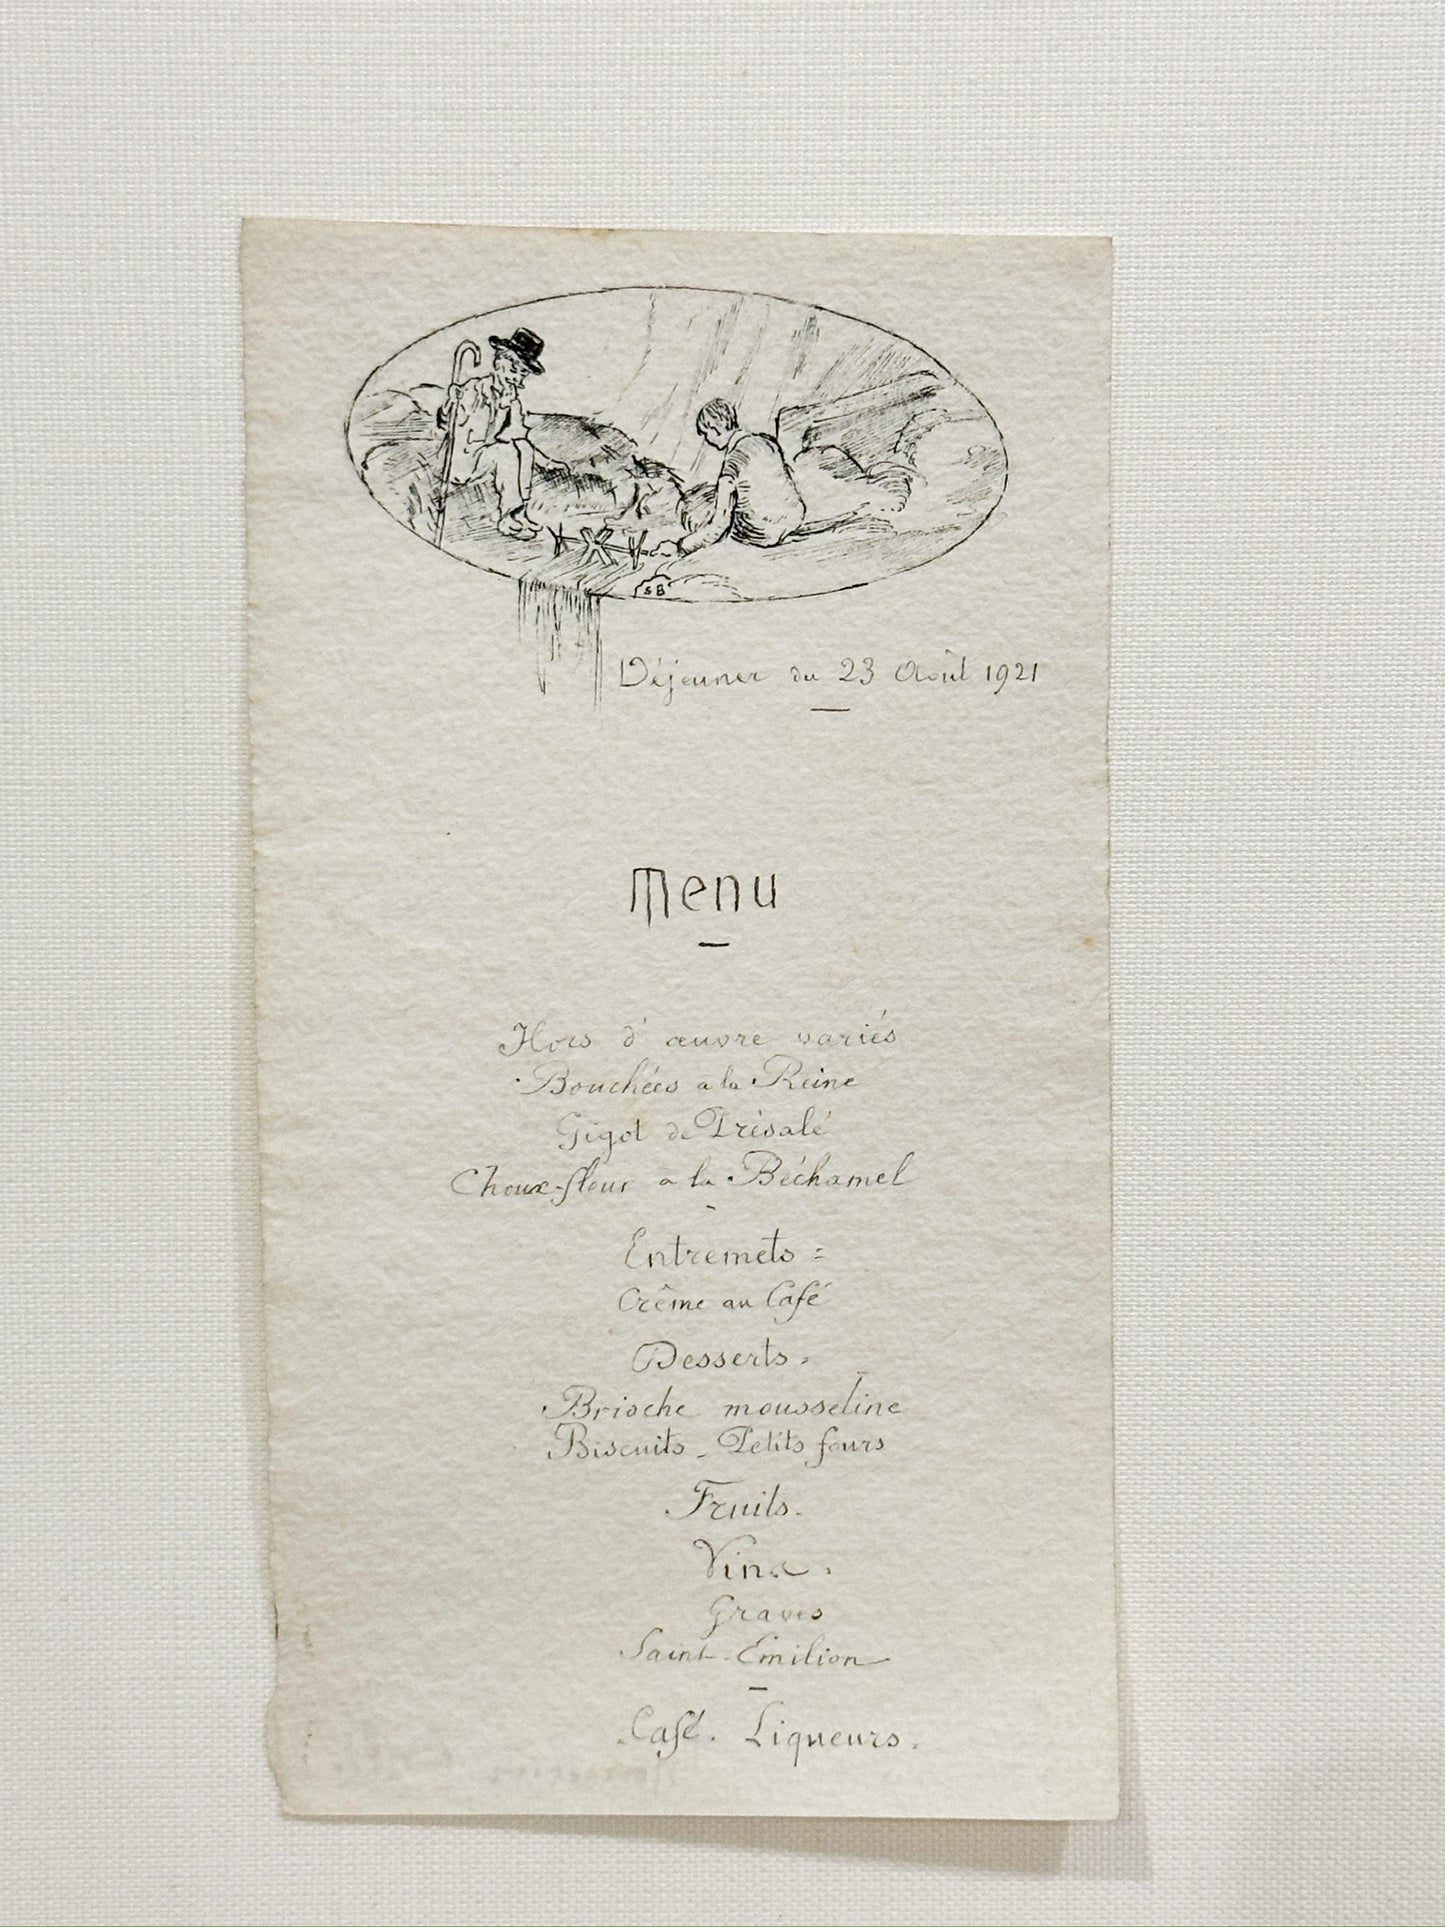 SB
Déjeuner du 23 Août 1921
Menu
Hors d'œuvre variés
Bouchées à la Reine
Gigot de Présalé
Choux-fleur à la Béchamel
Entremets =
Crême au Café
Desserts.
Brioche mousseline
Biscuits - Petits fours
Fruits.
Vins.
Graves
Saint-Emilion
Café. Liqueurs.